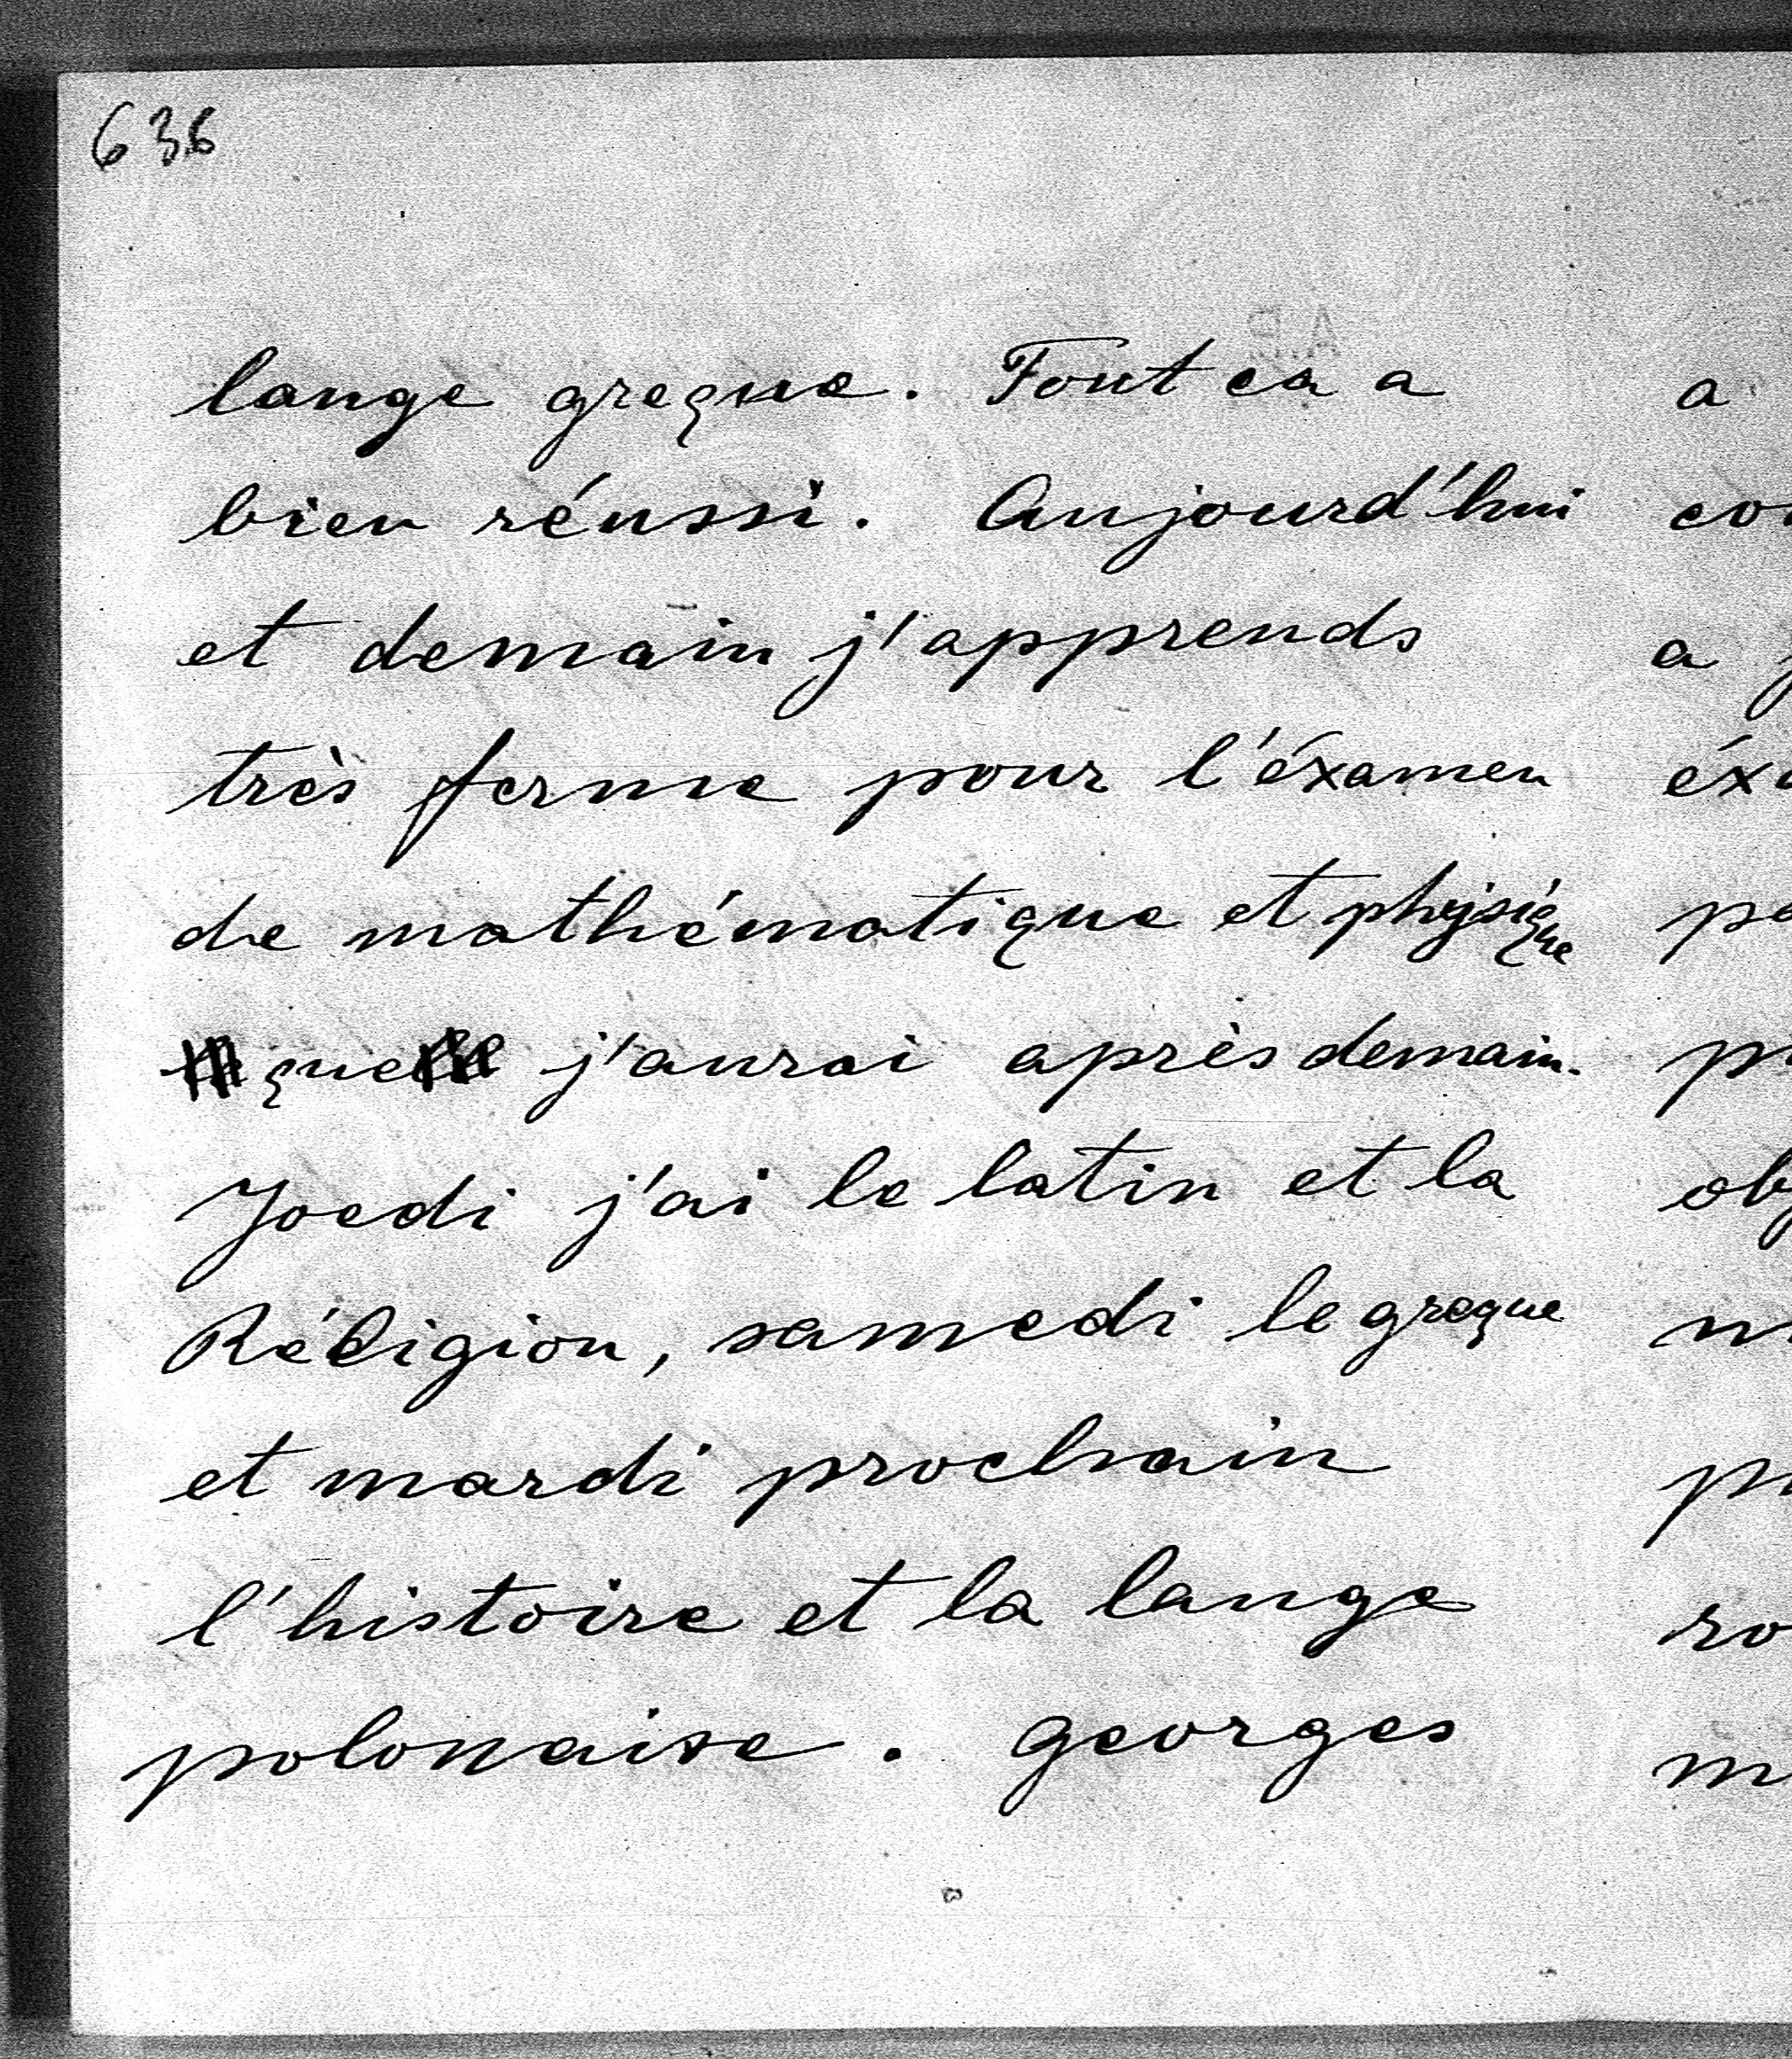 636
lange greque. Tout ca a
bien réussi. Aujourd'hui
et demain j'apprends
très ferme pour l'éxamen
de mathématique et physique
que j'aurai après demain.
Joedi j'ai le latin et la
Réligion, samedi le greque
et mardi prochain
l'histoire et la lange
polonaise. Georges
a
a